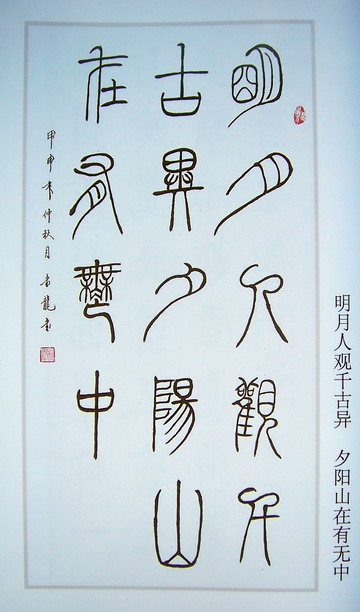 明月人观千古异 夕阳山在有无中
明月人觀千
古異夕陽山
在有無中
甲申年仲秋月